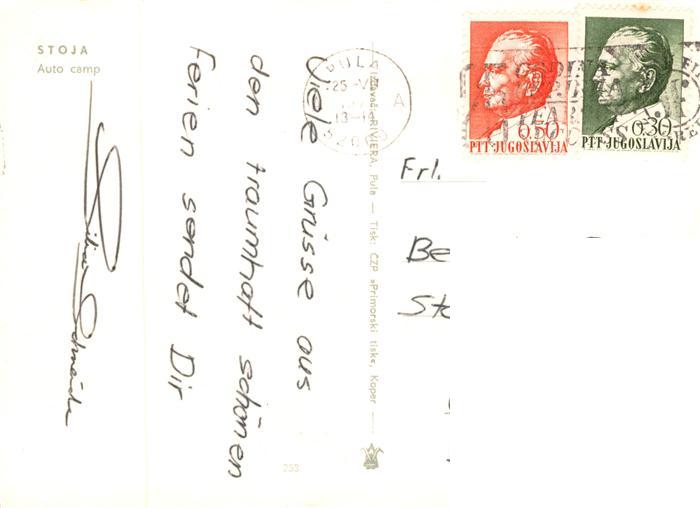 STOJA
Auto camp
Viele Grüsse aus
den traumhaft schönen
Ferien sendet Dir
Schneider
Izdavač „RIVIERA, Pula — Tisk: ČZP »Primorski tisk«, Koper
253
PULA
13-
A
0,50
PTT·JUGOSLAVIJA
0,30
PTT·JUGOSLAVIJA
Frl.
Be
Sta